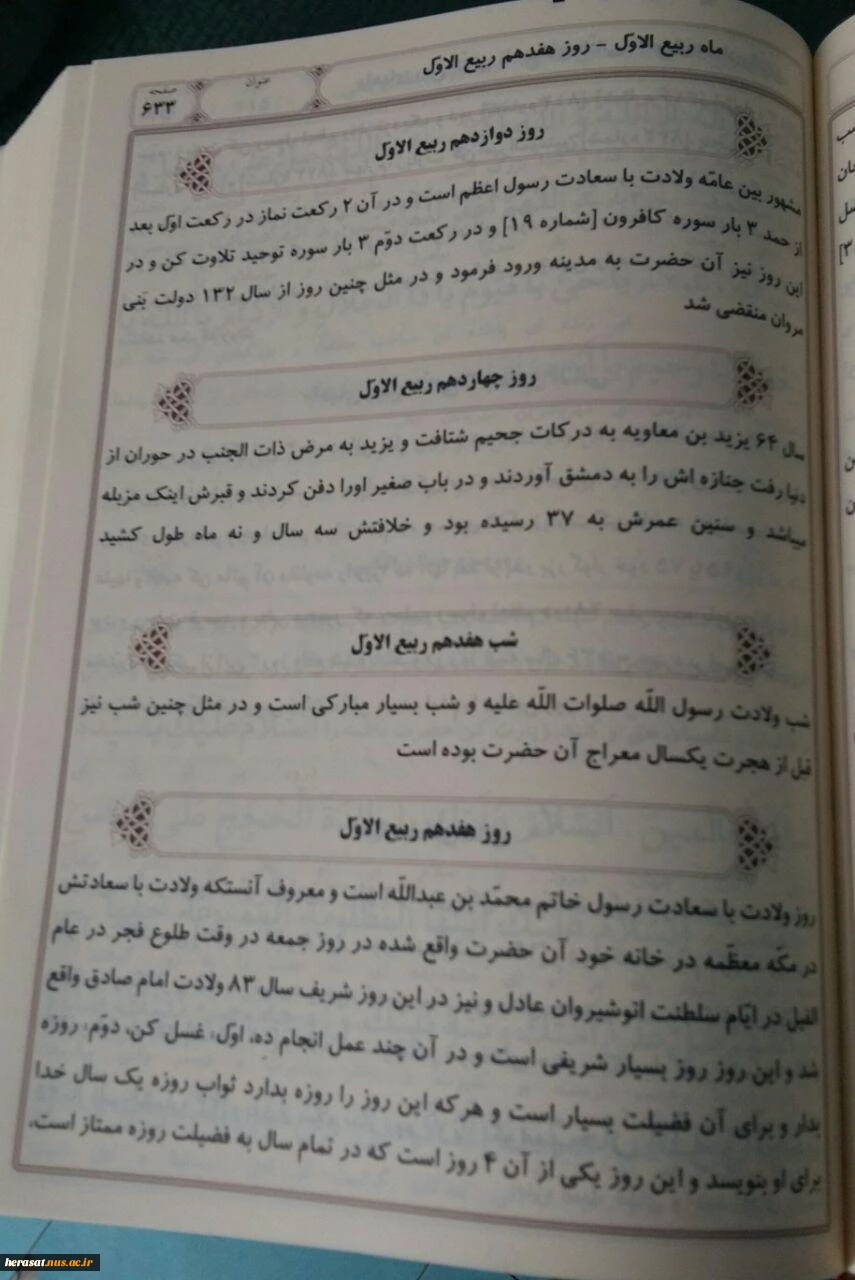 ماه ربیع الاوّل - روز هفدهم ربیع الاوّل
عنوان
صفحه
۶۳۳
روز دوازدهم ربیع الاوّل
مشهور بین عامّه ولادت با سعادت رسول اعظم است و در آن ۲ رکعت نماز در رکعت اوّل بعد
از حمد ۳ بار سوره کافرون [شماره ۱۹] و در رکعت دوّم ۳ بار سوره توحید تلاوت کن و در
این روز نیز آن حضرت به مدینه ورود فرمود و در مثل چنین روز از سال ۱۳۲ دولت بَنی
مروان منقضی شد
روز چهاردهم ربیع الاوّل
سال ۶۴ یزید بن معاویه به درکات جحیم شتافت و یزید به مرض ذات الجنب در حوران از
دنیا رفت جنازه اش را به دمشق آوردند و در باب صغیر اورا دفن کردند و قبرش اینک مزبله
میباشد و سنین عمرش به ۳۷ رسیده بود و خلافتش سه سال و نه ماه طول کشید
شب هفدهم ربیع الاوّل
شب ولادت رسول اللّه صلوات اللّه علیه و شب بسیار مبارکی است و در مثل چنین شب نیز
قبل از هجرت یکسال معراج آن حضرت بوده است
روز هفدهم ربیع الاوّل
روز ولادت با سعادت رسول خاتم محمّد بن عبداللّه است و معروف آنستکه ولادت با سعادتش
در مکّه معظّمه در خانه خود آن حضرت واقع شده در روز جمعه در وقت طلوع فجر در عام
الفیل در ایّام سلطنت انوشیروان عادل و نیز در این روز شریف سال ۸۳ ولادت امام صادق واقع
شد و این روز روز بسیار شریفی است و در آن چند عمل انجام ده، اوّل: غسل کن، دوّم: روزه
بدار و برای آن فضیلت بسیار است و هرکه این روز را روزه بدارد ثواب روزه یک سال خدا
برای او بنویسد و این روز یکی از آن ۴ روز است که در تمام سال به فضیلت روزه ممتاز است.
herasat.nus.ac.ir